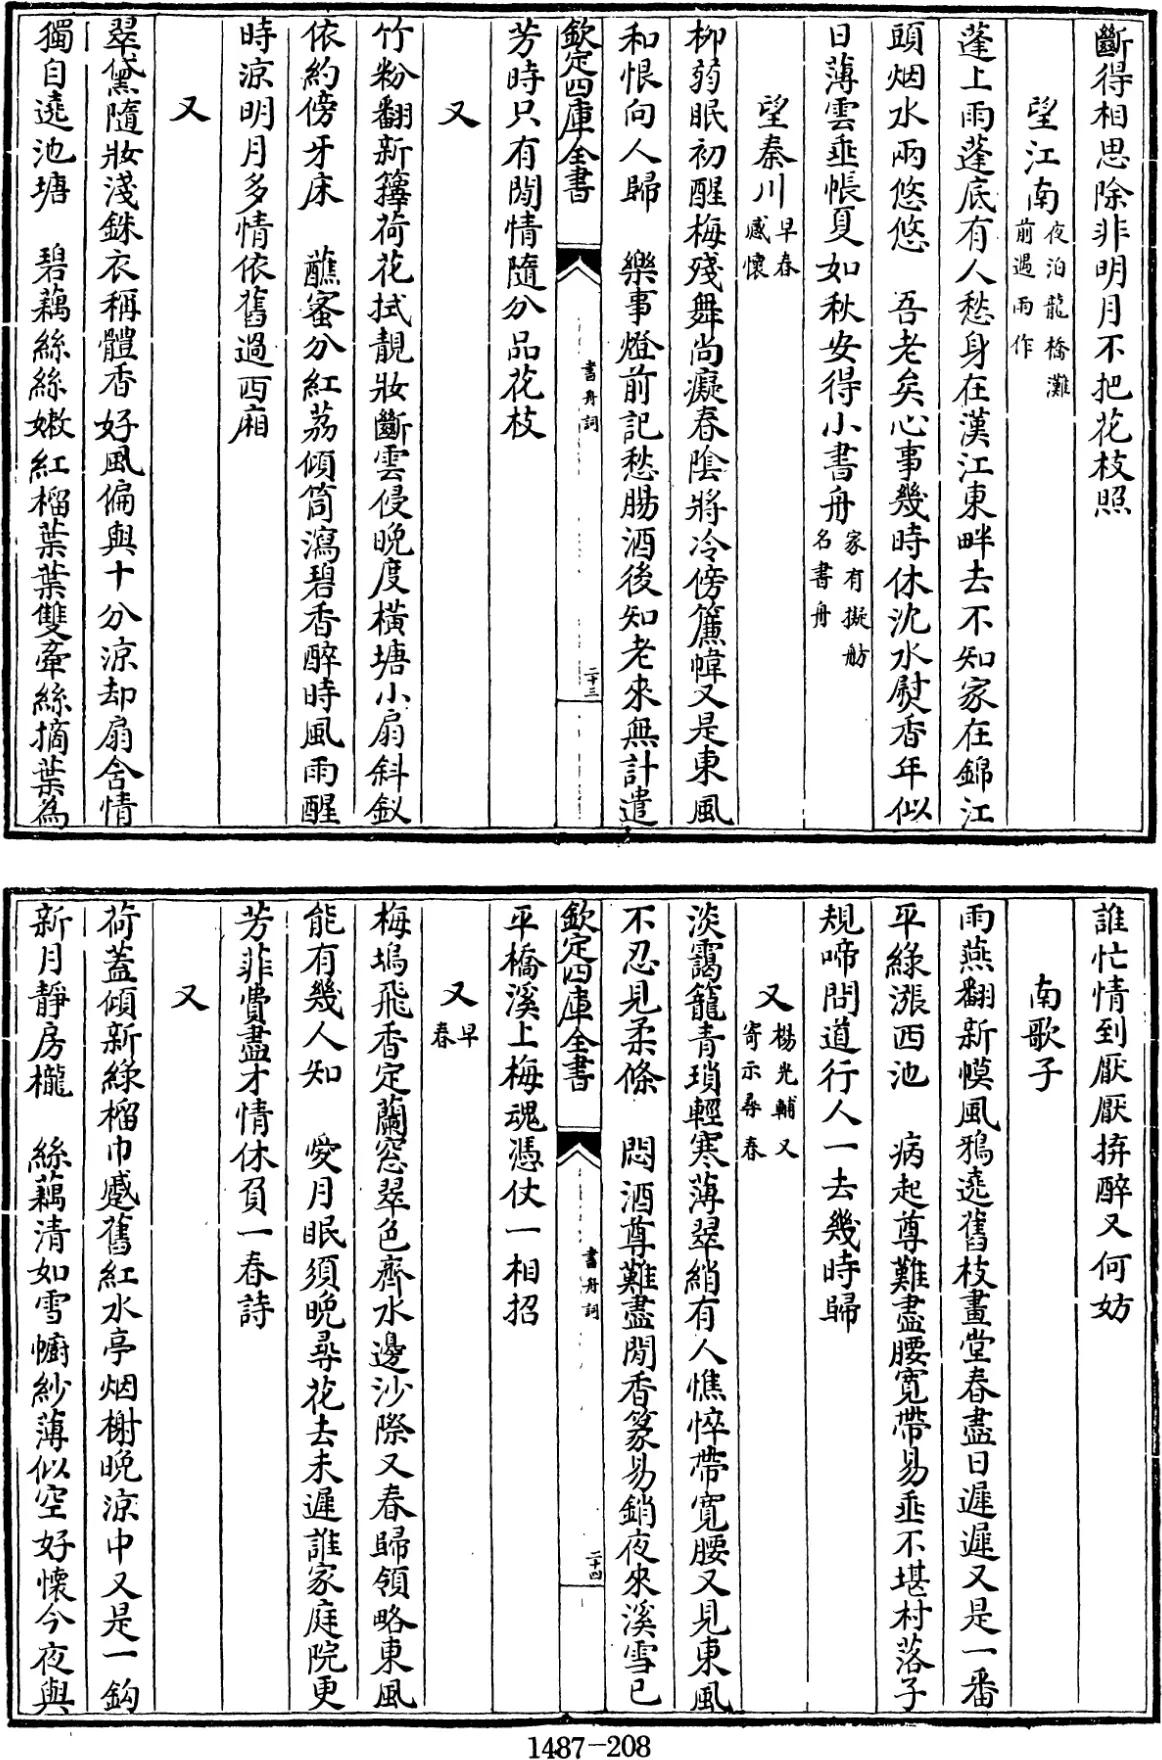 斷得相思除非明月不把花枝照
望江南夜泊龍橋灘前遇雨作
蓬上雨蓬底有人愁身在漢江東畔去不知家在錦江
頭烟水兩悠悠　吾老矣心事幾時休沈水熨香年似
日薄雲垂帳夏如秋安得小書舟家有擬舫名書舟
望秦川早春感懷
柳弱眠初醒梅殘舞尚癡春陰將冷傍簾幃又是東風
和恨向人歸　樂事燈前記愁腸酒後知老來無計遣
欽定四庫全書　書舟詞　二十三
芳時只有閒情隨分品花枝
又
竹粉翻新籜荷花拭靚妝斷雲侵晚度橫塘小扇斜釵
依約傍牙床　蘸蜜分紅荔傾筒瀉碧香醉時風雨醒
時涼明月多情依舊過西廂
又
翠黛隨妝淺銖衣稱體香好風偏與十分涼却扇含情
獨自遶池塘　碧藕絲絲嫩紅榴葉葉雙牽絲摘葉為
誰忙情到厭厭拚醉又何妨
南歌子
雨燕翻新幙風鴉遶舊枝畫堂春盡日遲遲又是一番
平綠漲西池　病起尊難盡腰寛帶易垂不堪村落子
規啼問道行人一去幾時歸
又楊光輔又寄示尋春
淡靄籠青瑣輕寒薄翠綃有人憔悴帶寬腰又見東風
不忍見柔條　悶酒尊難盡閒香篆易銷夜來溪雪已
欽定四庫全書　書舟詞　二十四
平橋溪上梅魂憑仗一相招
又早春
梅塢飛香定蘭窓翠色齊水邊沙際又春歸領略東風
能有幾人知　愛月眠須晚尋花去未遲誰家庭院更
芳菲費盡才情休負一春詩
又
荷蓋傾新綠榴巾蹙舊紅水亭烟榭晚涼中又是一鈎
新月靜房櫳　絲藕清如雪幮紗薄似空好懷今夜與
1487-208